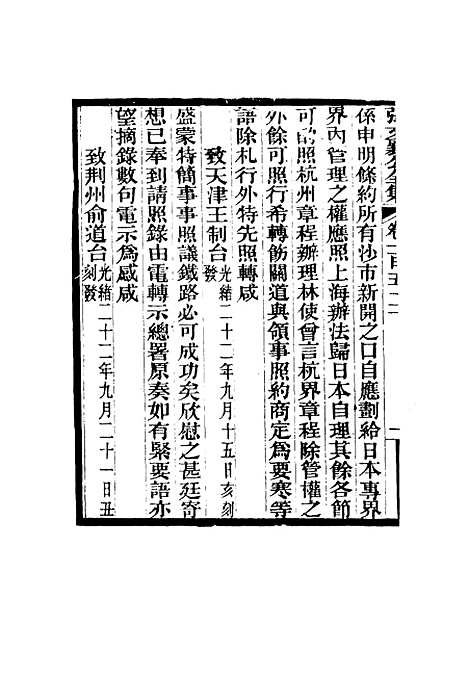 張文襄公全集 卷一百五十二
係申明條約所有沙市新開之口自應劃給日本專界
界內管理之權應照上海辦法歸日本自理其餘各節
可酌照杭州章程辦理林使曾言杭界章程除管權之
外餘可照行希轉飭關道與領事照約商定爲要寒等
語除札行外特先照轉咸
致天津王制台光緒二十二年九月十五日亥刻發
盛蒙特簡事事照議鐵路必可成功矣欣慰之甚廷寄
想已奉到請照錄由電轉示總署原奏如有緊要語亦
望摘錄數句電示爲感咸
致荆州俞道台光緒二十二年九月二十一日丑刻發